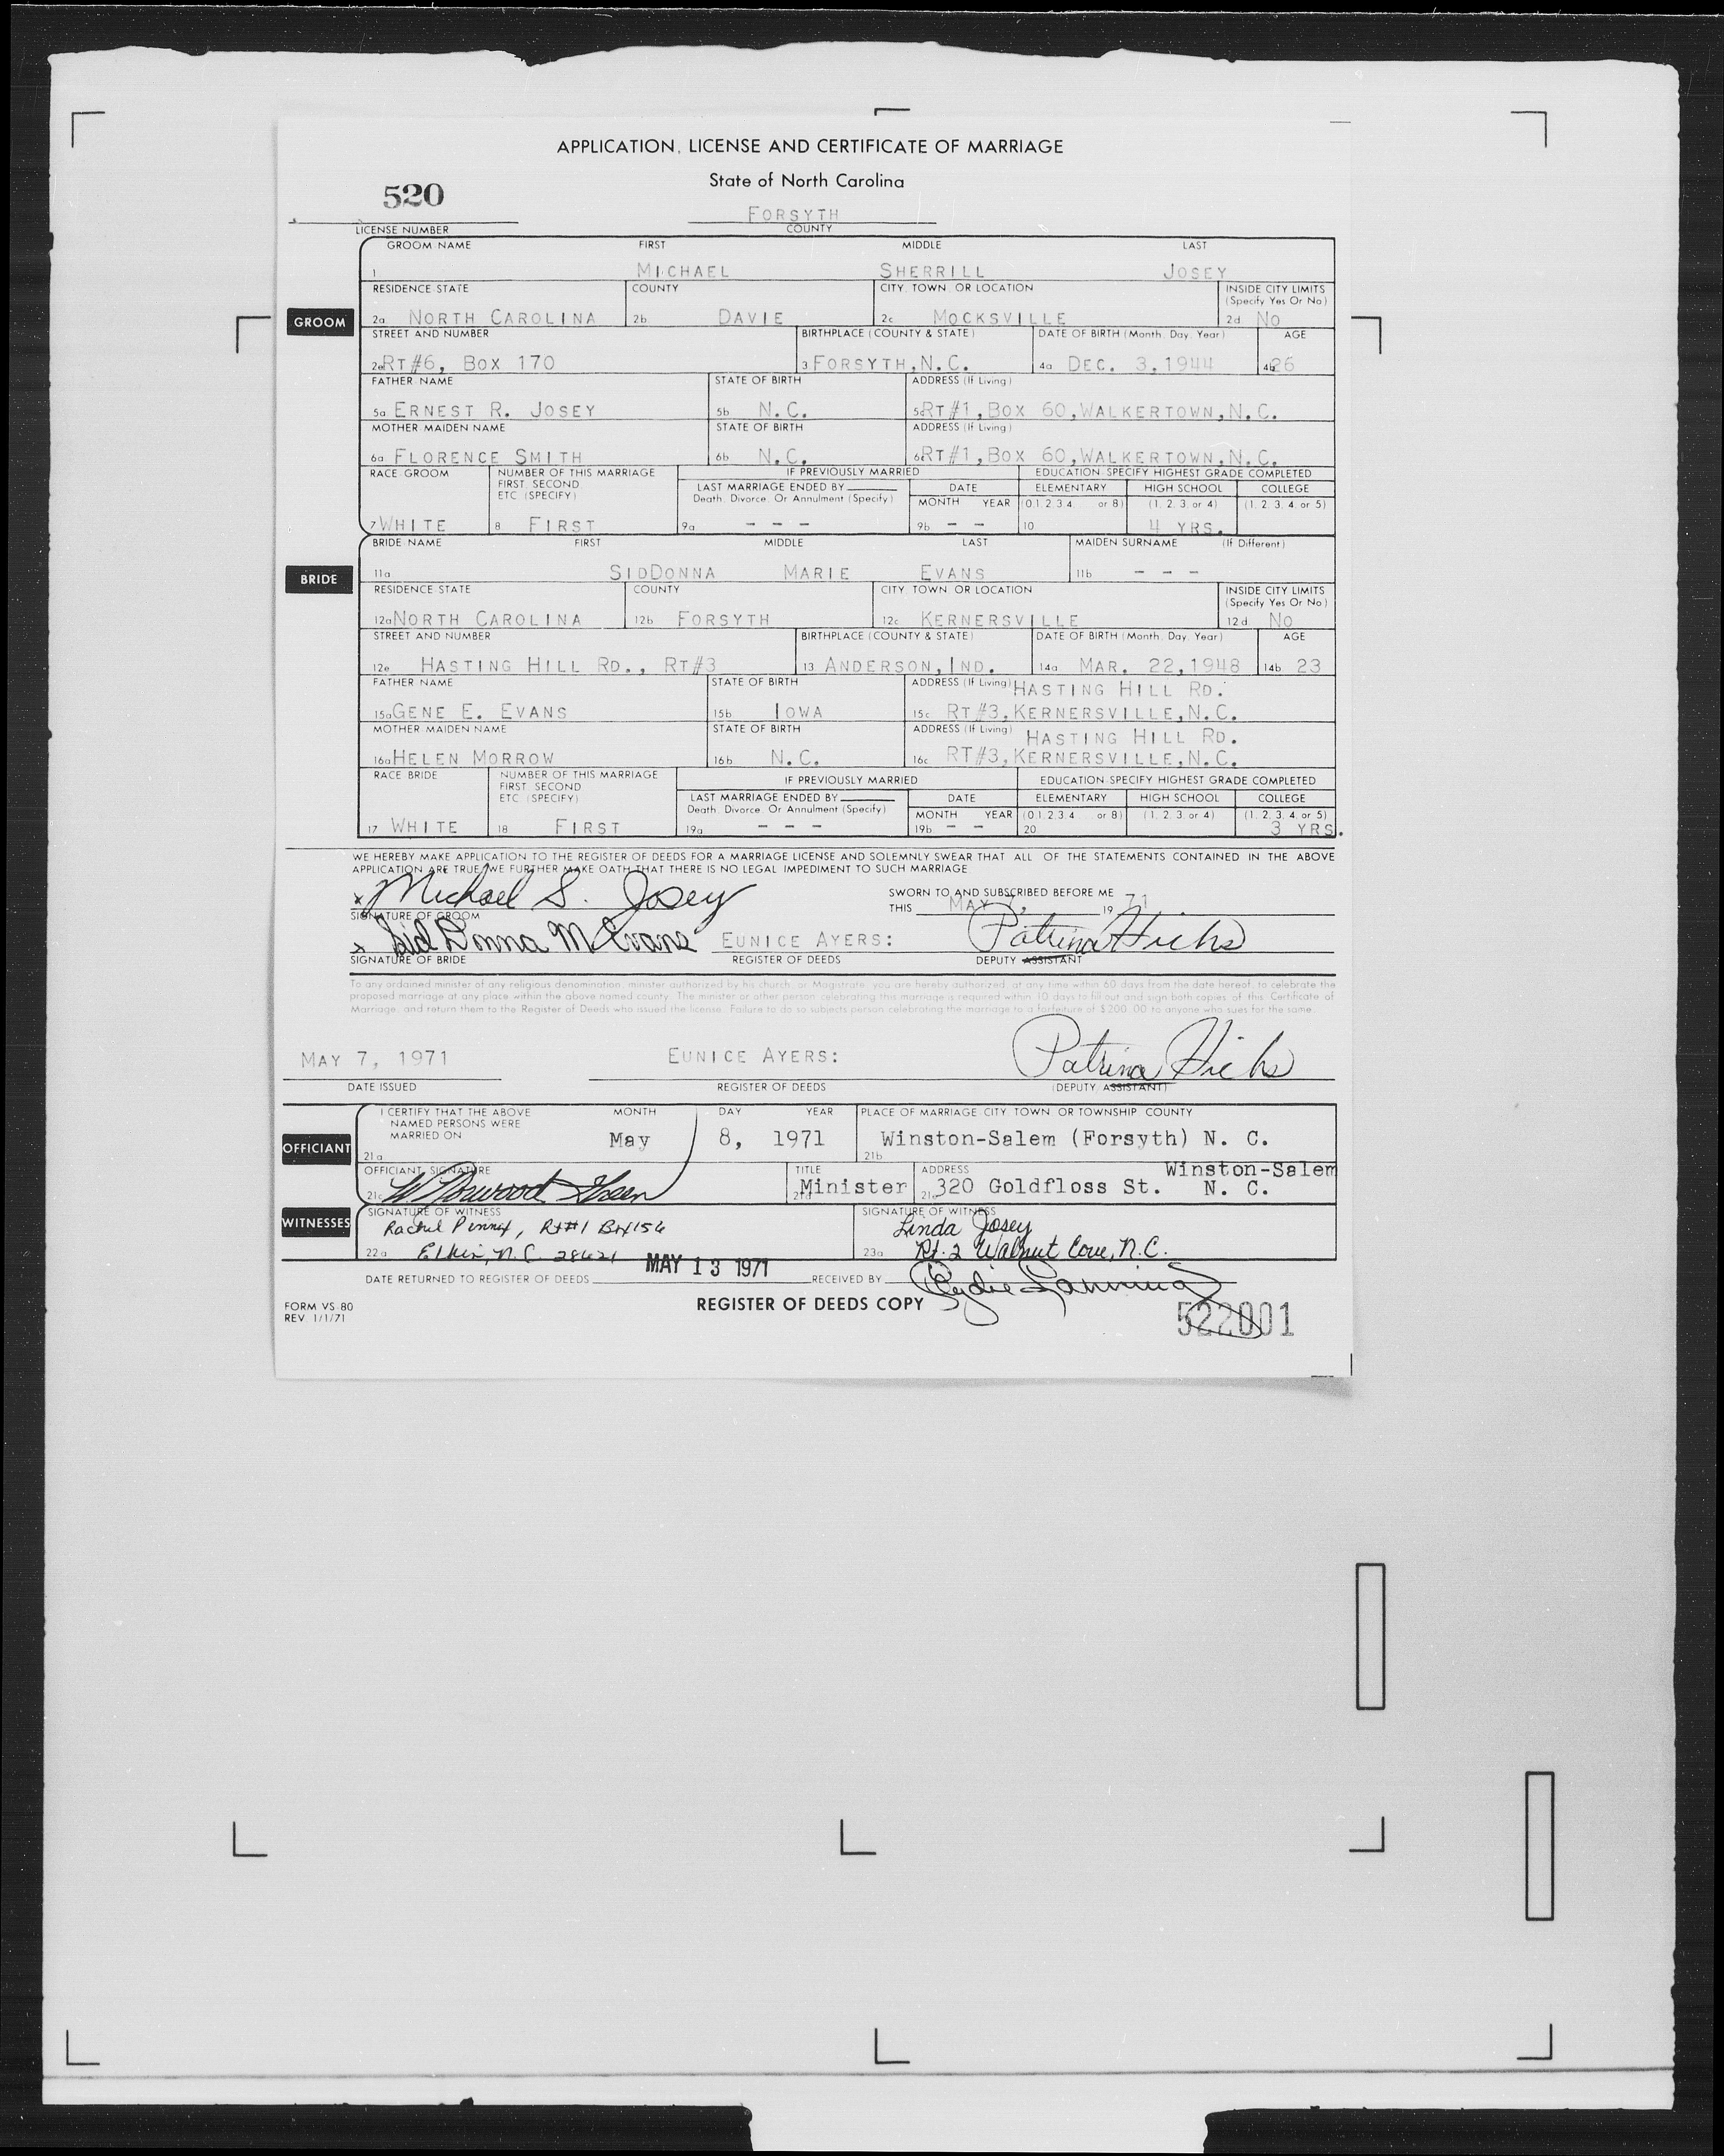 APPLICATION, LICENSE AND CERTIFICATE OF MARRIAGE
State of North Carolina
520
FORSYTH
LICENSE NUMBER COUNTY
GROOM
GROOM NAME FIRST MIDDLE LAST
1 MICHAEL SHERRILL JOSEY
RESIDENCE STATE COUNTY CITY, TOWN, OR LOCATION INSIDE CITY LIMITS (Specify Yes Or No)
2a NORTH CAROLINA 2b DAVIE 2c MOCKSVILLE 2d No
STREET AND NUMBER BIRTHPLACE (COUNTY & STATE) DATE OF BIRTH (Month, Day, Year) AGE
2e RT#6, BOX 170 3 FORSYTH, N.C. 4a DEC. 3, 1944 4b 26
FATHER NAME STATE OF BIRTH ADDRESS (If Living)
5a ERNEST R. JOSEY 5b N.C. 5c RT#1, BOX 60, WALKERTOWN, N.C.
MOTHER MAIDEN NAME STATE OF BIRTH ADDRESS (If Living)
6a FLORENCE SMITH 6b N.C. 6c RT#1, BOX 60, WALKERTOWN, N.C.
RACE GROOM NUMBER OF THIS MARRIAGE IF PREVIOUSLY MARRIED EDUCATION SPECIFY HIGHEST GRADE COMPLETED
FIRST, SECOND LAST MARRIAGE ENDED BY DATE ELEMENTARY HIGH SCHOOL COLLEGE
ETC (SPECIFY) Death, Divorce, Or Annulment (Specify) MONTH YEAR (0 1 2 3 4 or 8) (1, 2, 3, or 4) (1, 2, 3, 4, or 5)
7 WHITE 8 FIRST 9a - - - 9b - - 10 4 YRS.
BRIDE
BRIDE NAME FIRST MIDDLE LAST MAIDEN SURNAME (If Different)
11a SIDDONNA MARIE EVANS 11b - - -
RESIDENCE STATE COUNTY CITY TOWN OR LOCATION INSIDE CITY LIMITS (Specify Yes Or No)
12a NORTH CAROLINA 12b FORSYTH 12c KERNERSVILLE 12d No
STREET AND NUMBER BIRTHPLACE (COUNTY & STATE) DATE OF BIRTH (Month, Day, Year) AGE
12e HASTING HILL RD., RT#3 13 ANDERSON, IND. 14a MAR. 22, 1948 14b 23
FATHER NAME STATE OF BIRTH ADDRESS (If Living) HASTING HILL RD.
15a GENE E. EVANS 15b IOWA 15c RT#3, KERNERSVILLE, N.C.
MOTHER MAIDEN NAME STATE OF BIRTH ADDRESS (If Living) HASTING HILL RD.
16a HELEN MORROW 16b N.C. 16c RT#3, KERNERSVILLE, N.C.
RACE BRIDE NUMBER OF THIS MARRIAGE IF PREVIOUSLY MARRIED EDUCATION SPECIFY HIGHEST GRADE COMPLETED
FIRST, SECOND LAST MARRIAGE ENDED BY DATE ELEMENTARY HIGH SCHOOL COLLEGE
ETC (SPECIFY) Death, Divorce, Or Annulment (Specify) MONTH YEAR (0 1 2 3 4 or 8) (1, 2, 3, or 4) (1, 2, 3, 4, or 5)
17 WHITE 18 FIRST 19a - - - 19b - - 20 3 YRS.
WE HEREBY MAKE APPLICATION TO THE REGISTER OF DEEDS FOR A MARRIAGE LICENSE AND SOLEMNLY SWEAR THAT ALL OF THE STATEMENTS CONTAINED IN THE ABOVE
APPLICATION ARE TRUE WE FURTHER MAKE OATH THAT THERE IS NO LEGAL IMPEDIMENT TO SUCH MARRIAGE
x Michael S. Josey SWORN TO AND SUBSCRIBED BEFORE ME
SIGNATURE OF GROOM THIS MAY 7, 19 71
x Sid Donna M Evans EUNICE AYERS: Patrina Hicks
SIGNATURE OF BRIDE REGISTER OF DEEDS DEPUTY ASSISTANT
To any ordained minister of any religious denomination, minister authorized by his church, or Magistrate, you are hereby authorized, at any time within 60 days from the date hereof, to celebrate the
proposed marriage at any place within the above named county. The minister or other person celebrating this marriage is required within 10 days to fill out and sign both copies of this Certificate of
Marriage, and return them to the Register of Deeds who issued the license. Failure to do so subjects person celebrating the marriage to a forfeiture of $200.00 to anyone who sues for the same.
MAY 7, 1971 EUNICE AYERS: Patrina Hicks
DATE ISSUED REGISTER OF DEEDS (DEPUTY, ASSISTANT)
OFFICIANT
I CERTIFY THAT THE ABOVE MONTH DAY YEAR PLACE OF MARRIAGE CITY, TOWN, OR TOWNSHIP COUNTY
NAMED PERSONS WERE
MARRIED ON May 8, 1971 Winston-Salem (Forsyth) N. C.
21a 21b
OFFICIANT SIGNATURE TITLE ADDRESS Winston-Salem
21c W Norwood Green 21d Minister 21e 320 Goldfloss St. N. C.
WITNESSES
SIGNATURE OF WITNESS SIGNATURE OF WITNESS
Rachel, Rt#1 Bx 156 Linda Josey
22a Elkin, N.C. 28621 23a Rt. 2 Walnut Cove, N.C.
DATE RETURNED TO REGISTER OF DEEDS MAY 13 1971 RECEIVED BY
FORM VS-80 REGISTER OF DEEDS COPY
REV 1/1/71 522001